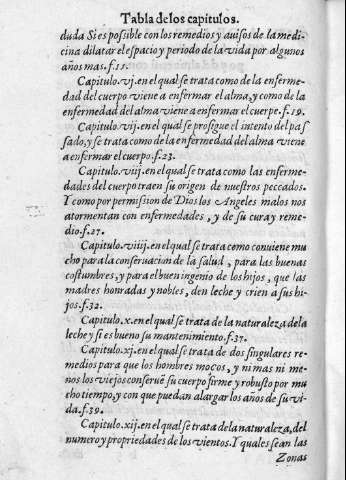 Tabla de los capitulos.
duda Si es possible con los remedios y auisos de la medi
cina dilatar el espacio y periodo de la vida por algunos
años mas.f.15.
Capitulo.vj.en el qual se trata como de la enferme-
dad del cuerpo viene a enfermar el alma,y como de la
enfermedad del alma viene a enfermar el cuerpo.f.19.
Capitulo.vij.en el qual se prosigue el intento del pas
sado,y se trata como de la enfermedad del alma viene
a enfermar el cuerpo.f.23.
Capitulo.viij.en el qual se trata como las enferme-
dades del cuerpo traen su origen de nuestros peccados.
Y como por permission de Dios los Angeles malos nos
atormentan con enfermedades , y de su cura y reme-
dio.f.27.
Capitulo.viiij.en el qual se trata como conuiene mu
cho para la conseruacion de la salud , para las buenas
costumbres,y para el buen ingenio de los hijos , que las
madres honradas y nobles, den leche y crien a sus hi-
jos.f.32.
Capitulo.x.en el qual se trata de la naturaleza de la
leche y si es bueno su mantenimiento.f.37.
Capitulo.xj.en el qual se trata de dos singulares re-
medios para que los hombres moços, y ni mas ni me-
nos los viejos conseruẽ su cuerpo firme y robusto por mu
cho tiempo,y con que puedan alargar los años de su vi-
da.f.39.
Capitulo.xij.en el qual se trata de la naturaleza,del
numero y propriedades de los vientos.Y quales sean las
Zonas